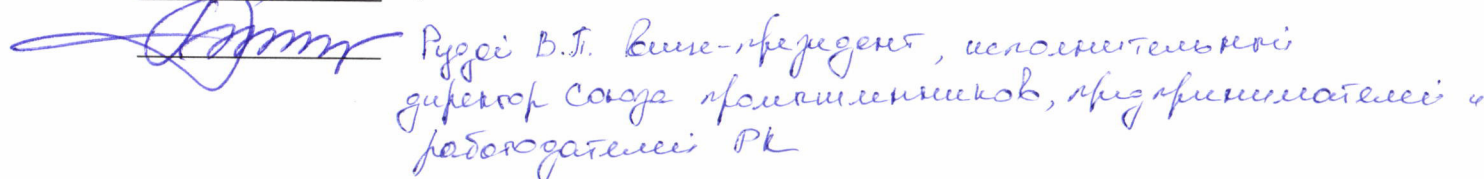 Руддй В.П. Вице-президент, исполнительный
директор Союза промышленников, предпринимателей и
работодателей РК